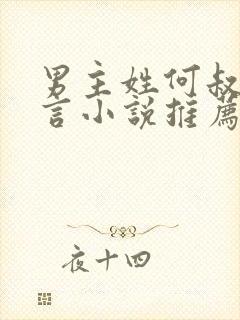 男主姓何叔
言小说推薦
夜十四